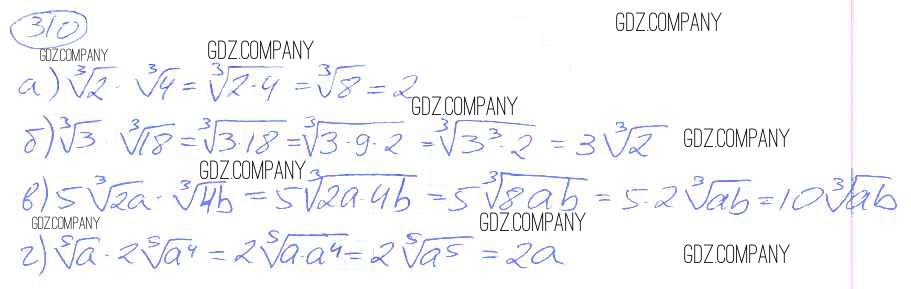 310
GDZ.COMPANY
GDZ.COMPANY GDZ.COMPANY
а) ∛2 · ∛4 = ∛(2·4) = ∛8 = 2
GDZ.COMPANY
б) ∛3 · ∛18 = ∛(3·18) = ∛(3·9·2) = ∛(3³·2) = 3∛2 GDZ.COMPANY
GDZ.COMPANY
в) 5∛2a · ∛4b = 5∛(2a·4b) = 5∛(8ab) = 5·2∛(ab) = 10∛(ab)
GDZ.COMPANY GDZ.COMPANY
г) ⁵√a · 2⁵√a⁴ = 2⁵√(a·a⁴) = 2⁵√a⁵ = 2a GDZ.COMPANY